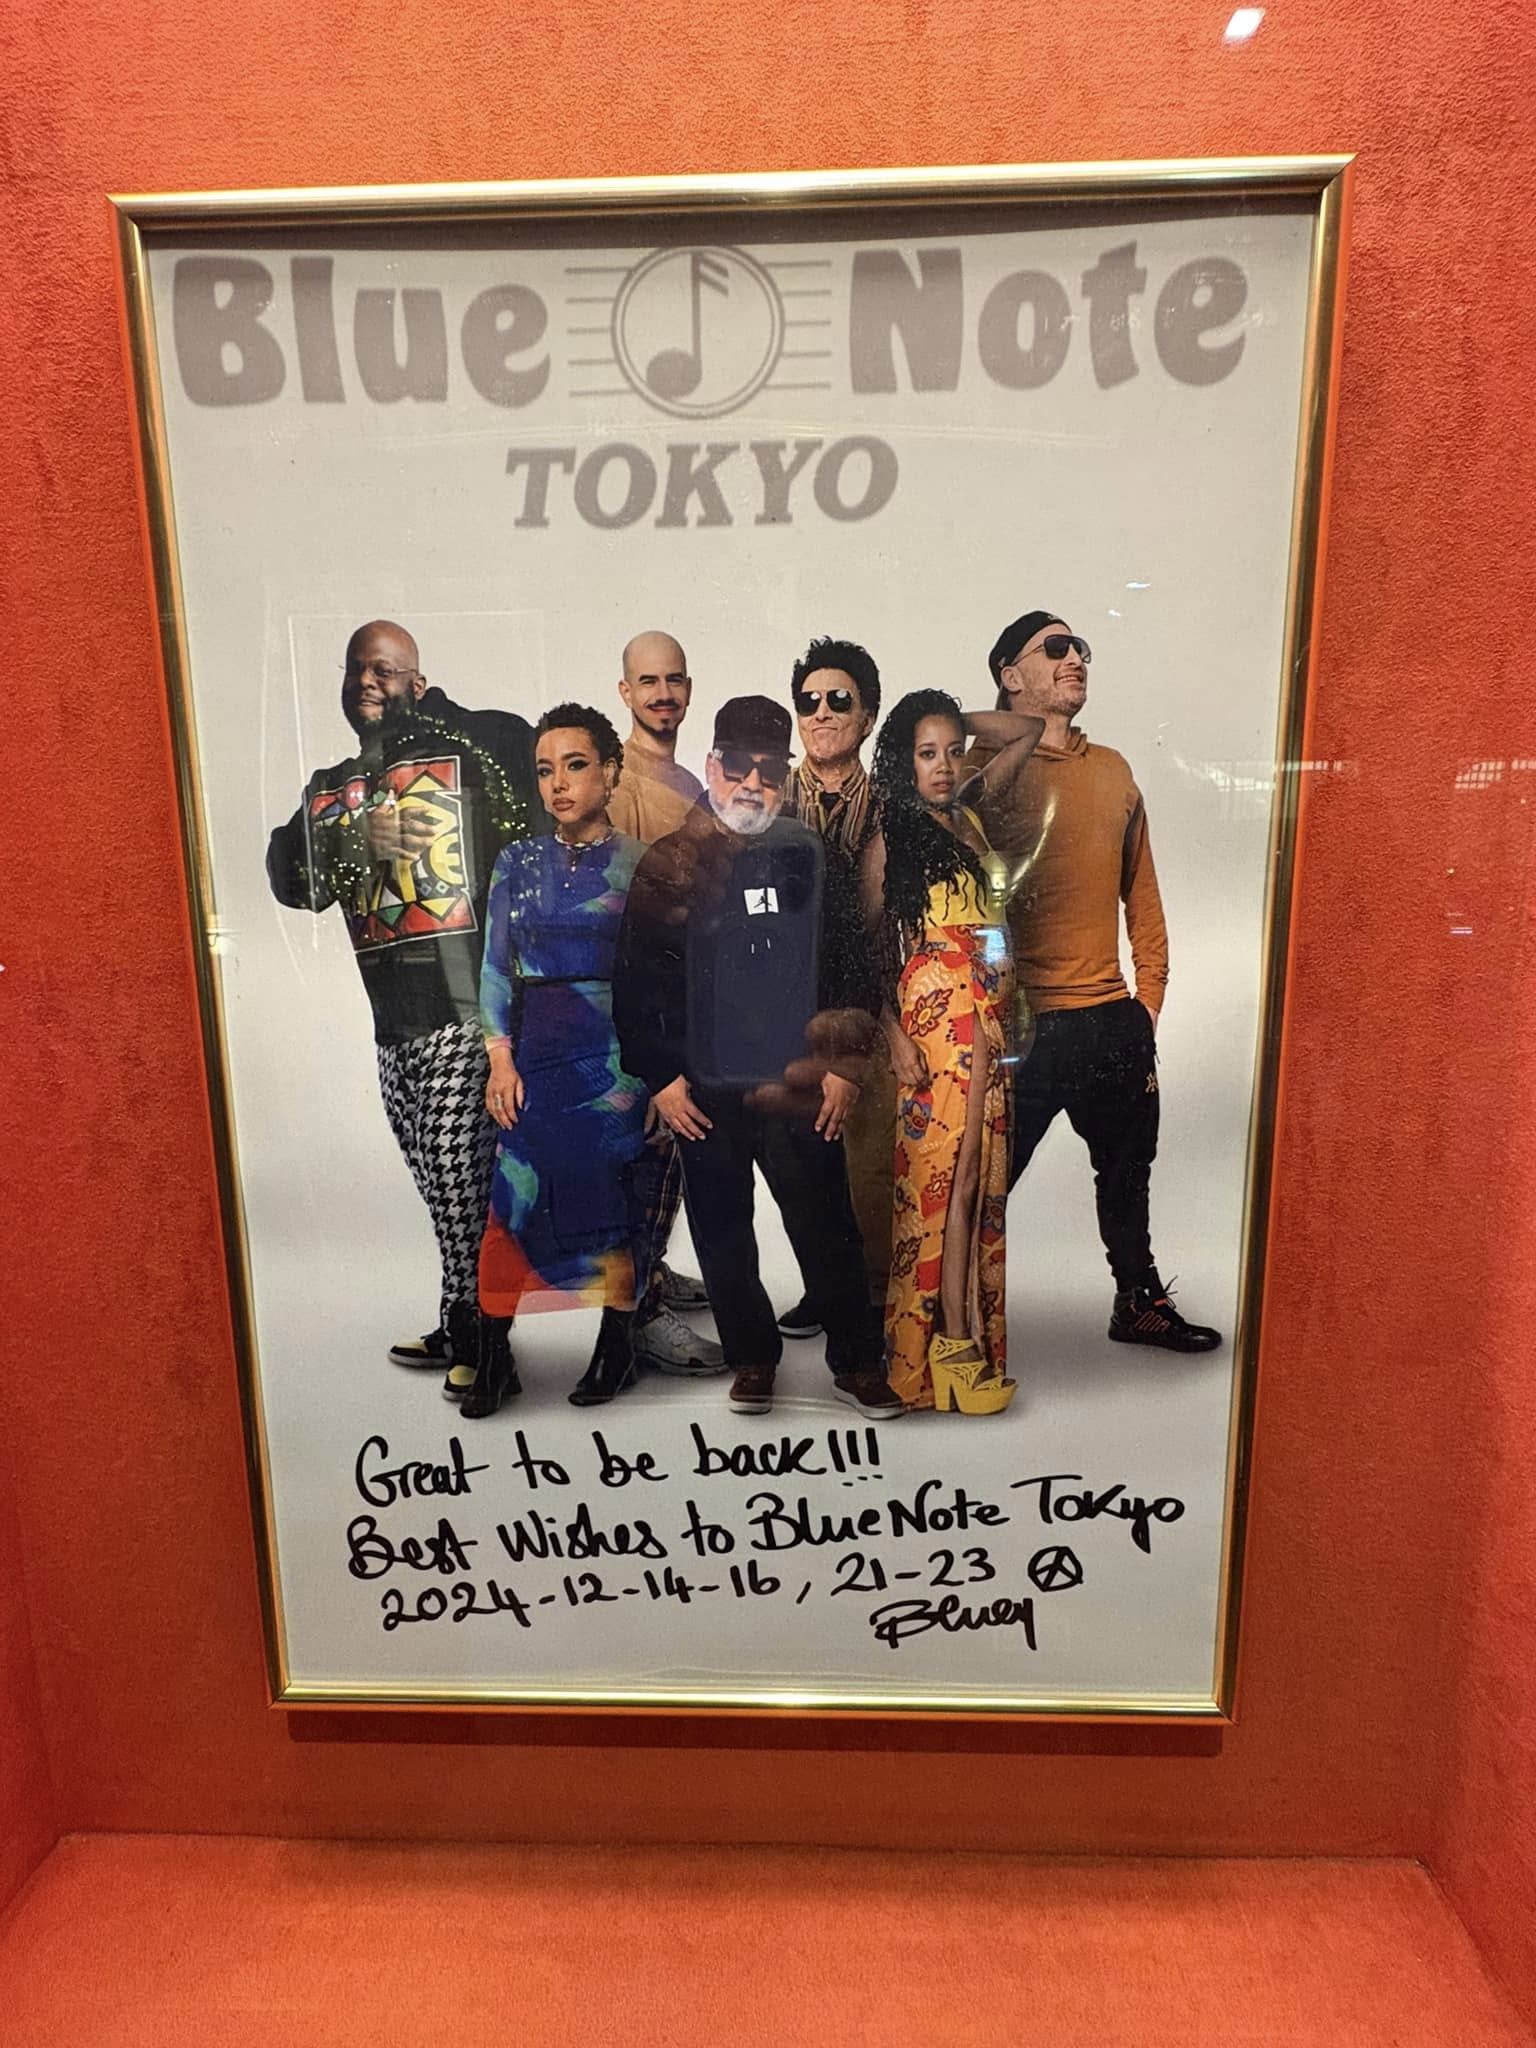 Blue Note
TOKYO
Great to be back!!!
Best Wishes to Blue Note Tokyo
2024-12-14-16, 21-23
Bluey